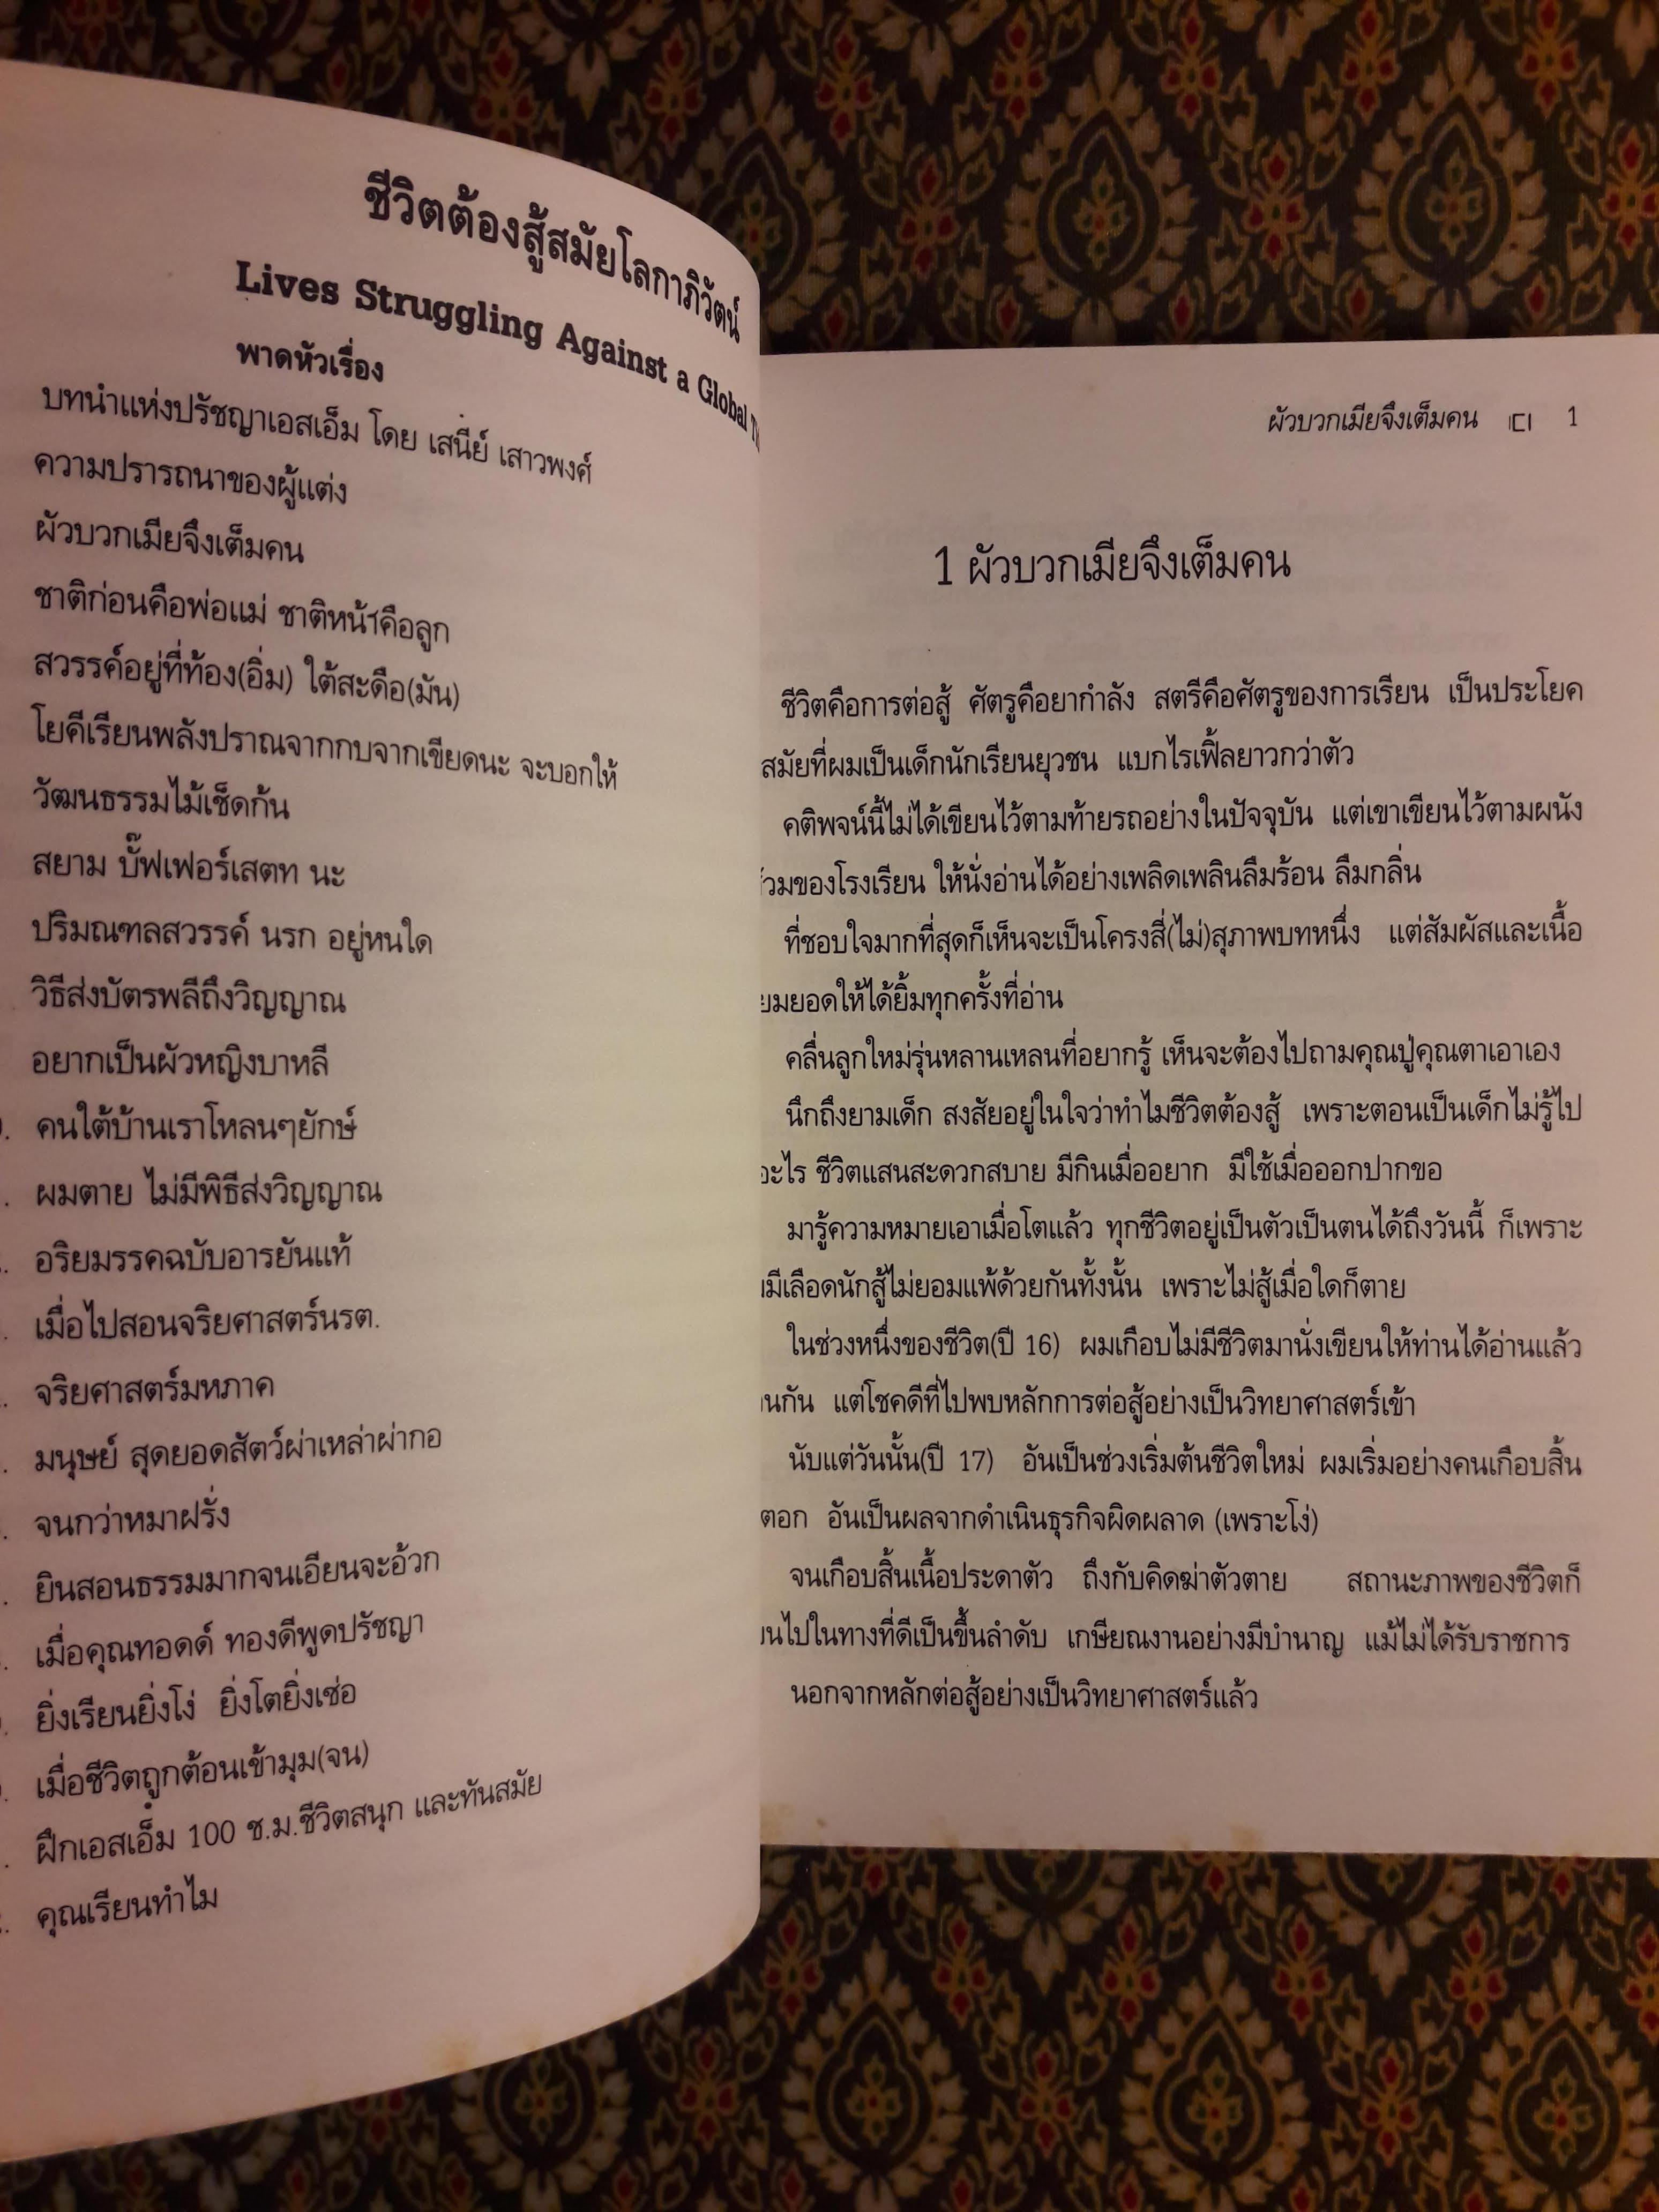 ชีวิตต้องสู้สมัยโลกาภิวัตน์
Lives Struggling Against a Global
พาดหัวเรื่อง
บทนำแห่งปรัชญาเอสเอ็ม โดย เสนีย์ เสาวพงศ์
ความปรารถนาของผู้แต่ง
ผัวบวกเมียจึงเต็มคน
ชาติก่อนคือพ่อแม่ ชาติหน้าคือลูก
สวรรค์อยู่ที่ท้อง(อิ่ม) ใต้สะดือ(มัน)
โยคีเรียนพลังปราณจากกบจากเขียดนะ จะบอกให้
วัฒนธรรมไม้เช็ดก้น
สยาม บั๊ฟเฟอร์เสตท นะ
ปริมณฑลสวรรค์ นรก อยู่หนใด
วิธีส่งบัตรพลีถึงวิญญาณ
อยากเป็นผัวหญิงบาหลี
คนใต้บ้านเราโหลนๆยักษ์
ผมตาย ไม่มีพิธีส่งวิญญาณ
อริยมรรคฉบับอารยันแท้
เมื่อไปสอนจริยศาสตร์นรต.
จริยศาสตร์มหภาค
มนุษย์ สุดยอดสัตว์ผ่าเหล่าผ่ากอ
จนกว่าหมาฝรั่ง
ยินสอนธรรมมากจนเอียนจะอ้วก
เมื่อคุณทอดด์ ทองดีพูดปรัชญา
ยิ่งเรียนยิ่งโง่ ยิ่งโตยิ่งเซ่อ
เมื่อชีวิตถูกต้อนเข้ามุม(จน)
ฝึกเอสเอ็ม 100 ช.ม.ชีวิตสนุก และทันสมัย
คุณเรียนทำไม
ผัวบวกเมียจึงเต็มคน 1
1 ผัวบวกเมียจึงเต็มคน
ชีวิตคือการต่อสู้ ศัตรูคือยากำลัง สตรีคือศัตรูของการเรียน เป็นประโยค
สมัยที่ผมเป็นเด็กนักเรียนยุวชน แบกไรเฟิ้ลยาวกว่าตัว
คติพจน์นี้ไม่ได้เขียนไว้ตามท้ายรถอย่างในปัจจุบัน แต่เขาเขียนไว้ตามผนัง
ของโรงเรียน ให้นั่งอ่านได้อย่างเพลิดเพลินลืมร้อน ลืมกลิ่น
ที่ชอบใจมากที่สุดก็เห็นจะเป็นโครงสี่(ไม่)สุภาพบทหนึ่ง แต่สัมผัสและเนื้อ
ยมยอดให้ได้ยิ้มทุกครั้งที่อ่าน
คลื่นลูกใหม่รุ่นหลานเหลนที่อยากรู้ เห็นจะต้องไปถามคุณปู่คุณตาเอาเอง
นึกถึงยามเด็ก สงสัยอยู่ในใจว่าทำไมชีวิตต้องสู้ เพราะตอนเป็นเด็กไม่รู้ไป
อะไร ชีวิตแสนสะดวกสบาย มีกินเมื่ออยาก มีใช้เมื่อออกปากขอ
มารู้ความหมายเอาเมื่อโตแล้ว ทุกชีวิตอยู่เป็นตัวเป็นตนได้ถึงวันนี้ ก็เพราะ
มีเลือดนักสู้ไม่ยอมแพ้ด้วยกันทั้งนั้น เพราะไม่สู้เมื่อใดก็ตาย
ในช่วงหนึ่งของชีวิต(ปี 16) ผมเกือบไม่มีชีวิตมานั่งเขียนให้ท่านได้อ่านแล้ว
นกัน แต่โชคดีที่ไปพบหลักการต่อสู้อย่างเป็นวิทยาศาสตร์เข้า
นับแต่วันนั้น(ปี 17) อันเป็นช่วงเริ่มต้นชีวิตใหม่ ผมเริ่มอย่างคนเกือบสิ้น
ตอก อันเป็นผลจากดำเนินธุรกิจผิดผลาด (เพราะโง่)
จนเกือบสิ้นเนื้อประดาตัว ถึงกับคิดฆ่าตัวตาย สถานะภาพของชีวิตก็
นไปในทางที่ดีเป็นขึ้นลำดับ เกษียณงานอย่างมีบำนาญ แม้ไม่ได้รับราชการ
นอกจากหลักต่อสู้อย่างเป็นวิทยาศาสตร์แล้ว